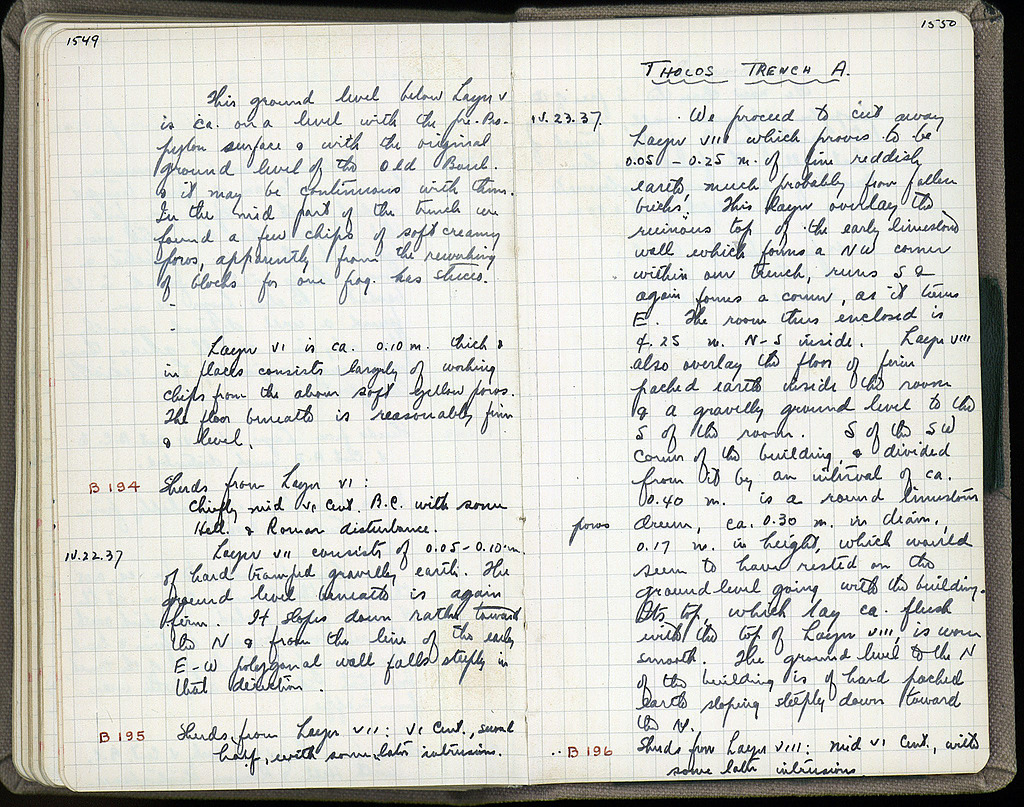 1549
This ground level below Layer V
is ca. on a level with the pre-Pro-
pylon surface & with the original
ground level of the Old Boul.
& it may be continuous with them.
In the mid part of the trench we
found a few chips of soft creamy
poros, apparently from the reworking
of blocks for one frag. has stucco.
Layer VI is ca. 0.10 m. thick &
in places consists largely of working
chips from the above soft yellow poros.
The floor beneath is reasonably firm
& level.
B 194 Sherds from Layer VI:
chiefly mid VI cent. B.C. with some
Hell. & Roman disturbance.
IV.22.37 Layer VII consists of 0.05-0.10 m.
of hard tramped gravelly earth. The
ground level beneath is again
firm. It slopes down rather toward
the N & from the line of the early
E-W polygonal wall falls steeply in
that direction.
B 195 Sherds from Layer VII: VI Cent., second
half, with some later intrusions.
1550
THOLOS TRENCH A.
IV.23.37. We proceed to cut away
Layer VIII which proves to be
0.05-0.25 m. of fine reddish
earth, much probably from fallen
bricks. This layer overlay the
ruinous top of the early limestone
wall which forms a NW corner
within our trench, runs S &
again forms a corner, as it turns
E. The room thus enclosed is
4.25 m. N-S inside. Layer VIII
also overlay the floor of firm
packed earth inside the room
& a gravelly ground level to the
S of the room. S of the SW
corner of the building, & divided
from it by an interval of ca.
0.40 m. is a round limestone
poros drum, ca. 0.30 m. in diam.,
0.17 m. in height, which would
seem to have rested on the
ground level going with the building.
Its top, which lay ca. flush
with the top of Layer VIII, is worn
smooth. The ground level to the N
of the building is of hard packed
earth sloping steeply down toward
the N.
B 196 Sherds from Layer VIII: mid VI Cent., with
some later intrusions.